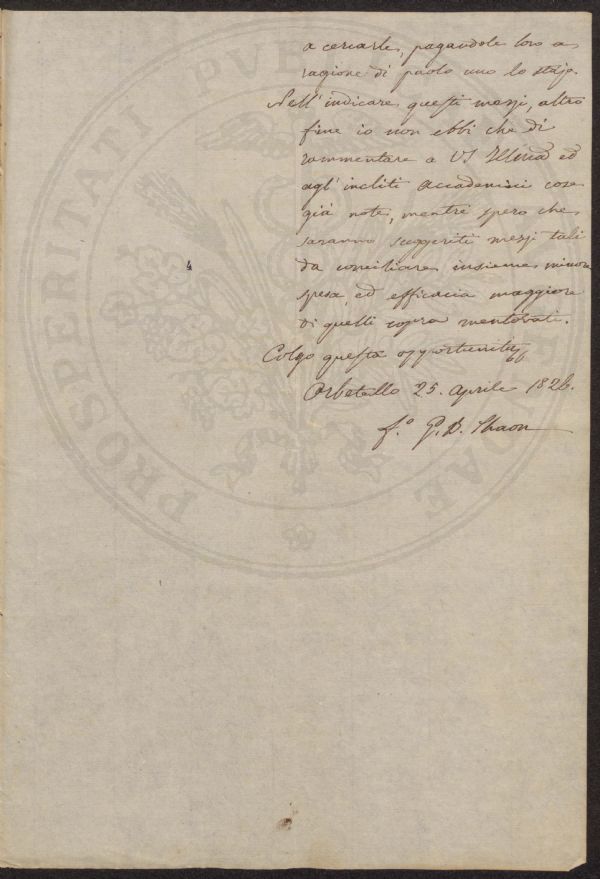 a cercarle, pagandole loro a
ragione di paolo uno lo stajo.
Nell'indicare questi mezzi, altro
fine io non ebbi che di
rammentare a VS Illma ed
agl'incliti Accademici cose
già note, mentre spero che
saranno suggeriti mezzi tali
da conciliare insieme minore
spesa, ed efficacia maggiore
di quelli sopra mentovati.
Colgo questa opportunità
Orbetello 25. Aprile 1826.
f.º G. B.
4
PROSPERITATI PVBLICAE